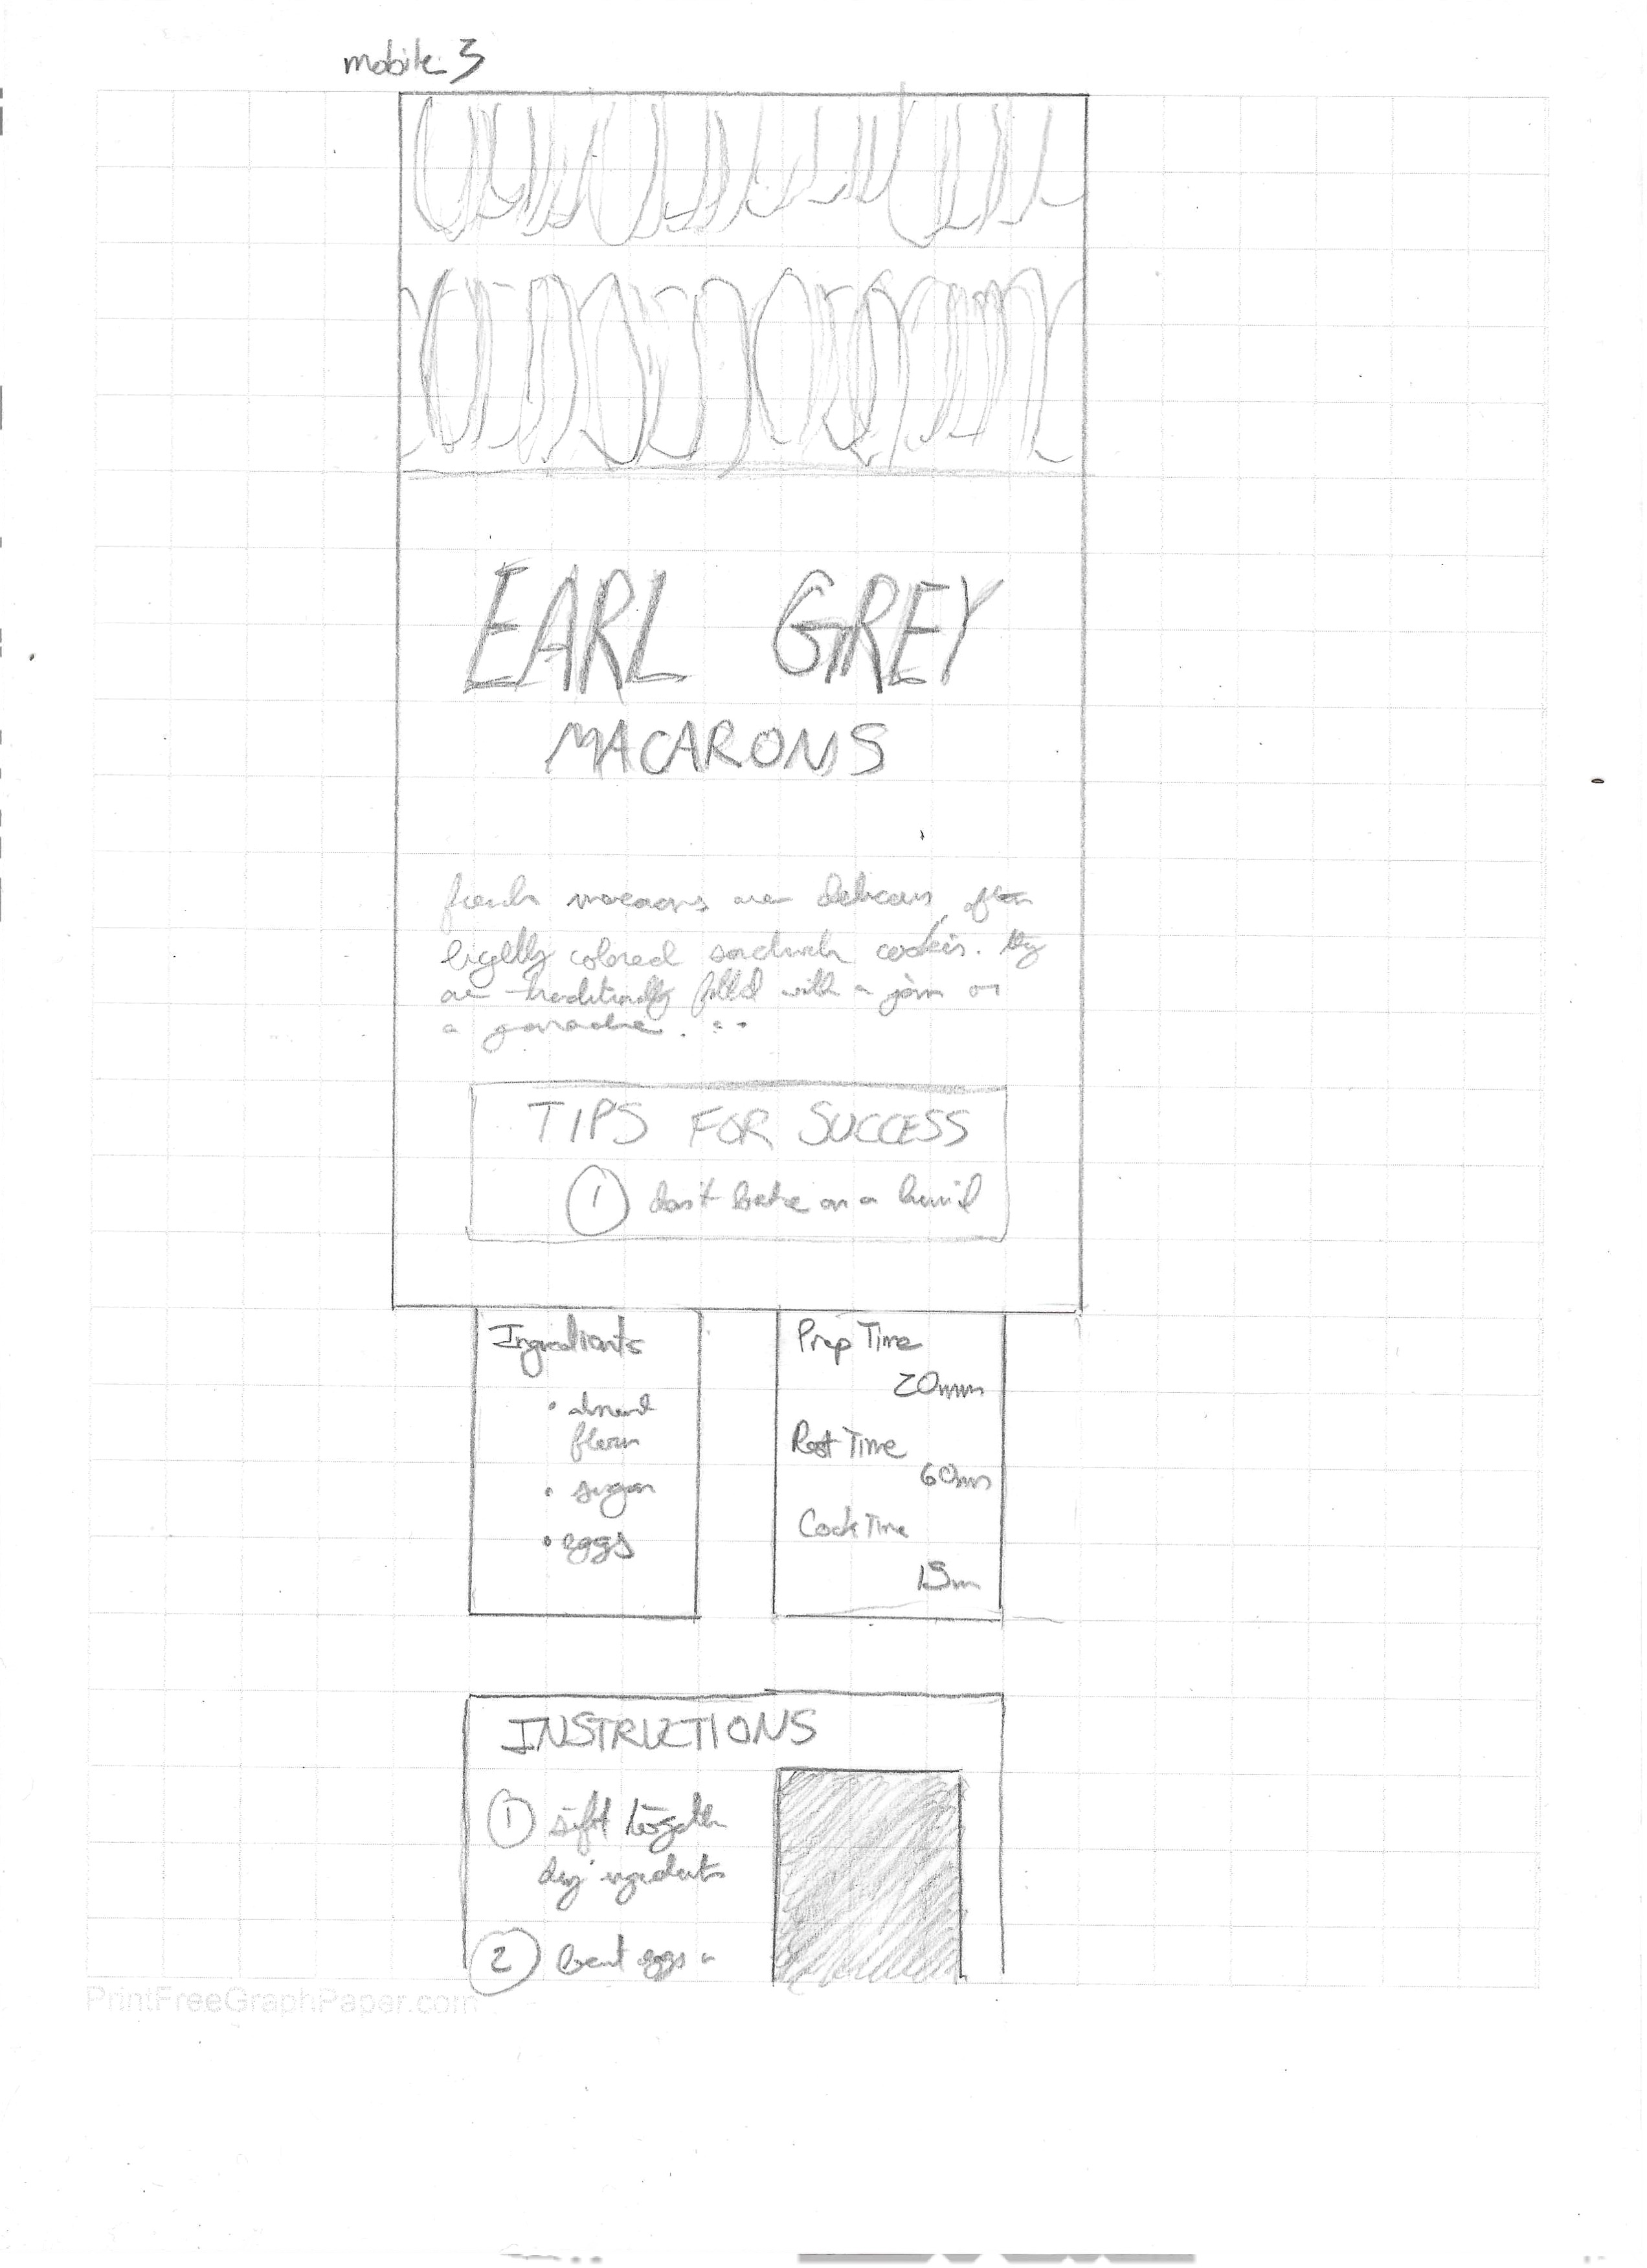 mobile 3
EARL GREY
MACARONS
french macarons are delicious, often
lightly colored sandwich cookies. they
are traditionally filled with a jam or
a ganache. ...
TIPS FOR SUCCESS
1 don't bake on a humid
Ingredients
• almond
flour
• sugar
• eggs
Prep Time
20min
Rest Time
60min
Cook Time
15m
INSTRUCTIONS
1 sift together
dry ingredients
2 beat eggs
PrintFreeGraphPaper.com